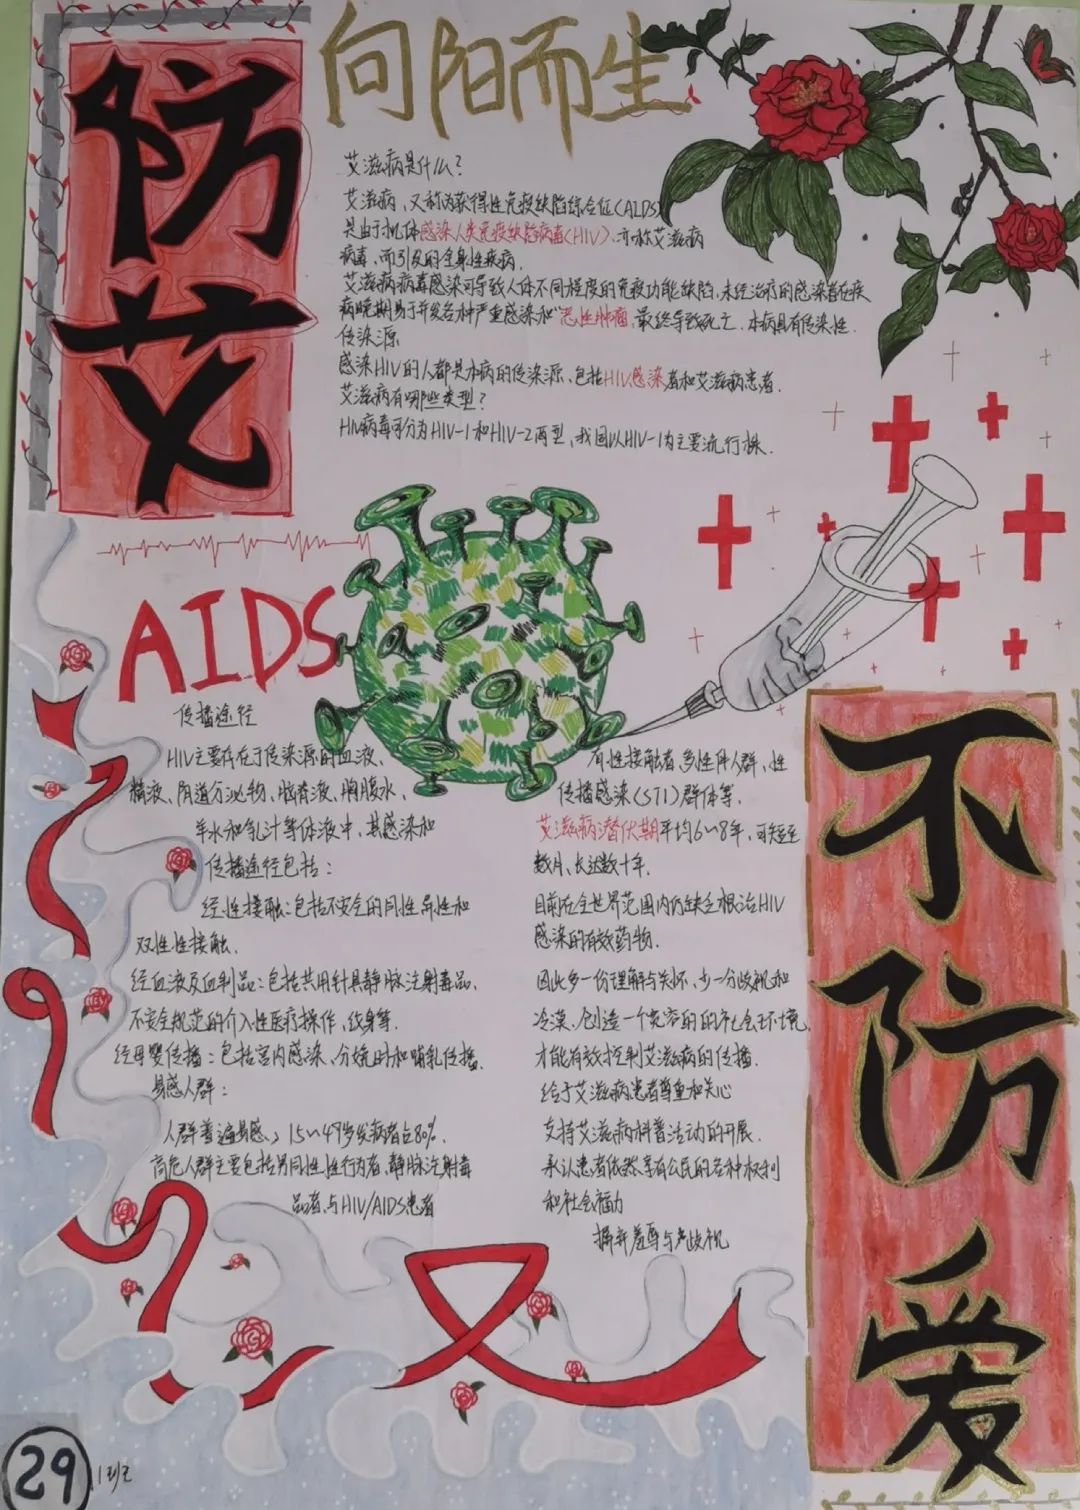 防艾
向阳而生
艾滋病是什么?
艾滋病,又称为获得性免疫缺陷综合征(AIDS)
是由于机体感染人类免疫缺陷病毒(HIV),亦称艾滋病
病毒,而引发的全身性疾病.
艾滋病病毒感染可导致人体不同程度的免疫功能缺陷,未经治疗的感染者在疾
病晚期易于并发各种严重感染和"恶性肿瘤,最终导致死亡.本病具有传染性.
传染源
感染HIV的人都是本病的传染源,包括HIV感染者和艾滋病患者.
艾滋病有哪些类型?
HIV病毒可分为HIV-1和HIV-2两型,我国以HIV-1为主要流行株.
AIDS
传播途径
HIV主要存在于传染源的血液、
精液、阴道分泌物、脑脊液、胸腹水、
羊水和乳汁等体液中,其感染和
传播途径包括:
经性接触:包括不安全的同性异性和
双性性接触.
经血液及血制品:包括共用针具静脉注射毒品,
不安全规范的介入性医疗操作,纹身等.
经母婴传播:包括宫内感染、分娩时和哺乳传播.
易感人群:
人群普遍易感,15~49岁发病者占80%.
高危人群主要包括男同性性行为者,静脉注射毒
品者,与HIV/AIDS患者
有性接触者,多性伴人群,性
传播感染(STI)群体等.
艾滋病潜伏期平均6~8年,可短至
数月,长达数十年.
目前在全世界范围内仍缺乏根治HIV
感染的有效药物.
因此多一份理解与关怀,少一分歧视和
冷漠,创造一个宽容的的社会环境,
才能有效控制艾滋病的传播.
给于艾滋病患者尊重和关心
支持艾滋病科普活动的开展.
承认患者依然享有公民的各种权利
和社会福力
摒弃羞辱与歧视
不防爱
29
1班